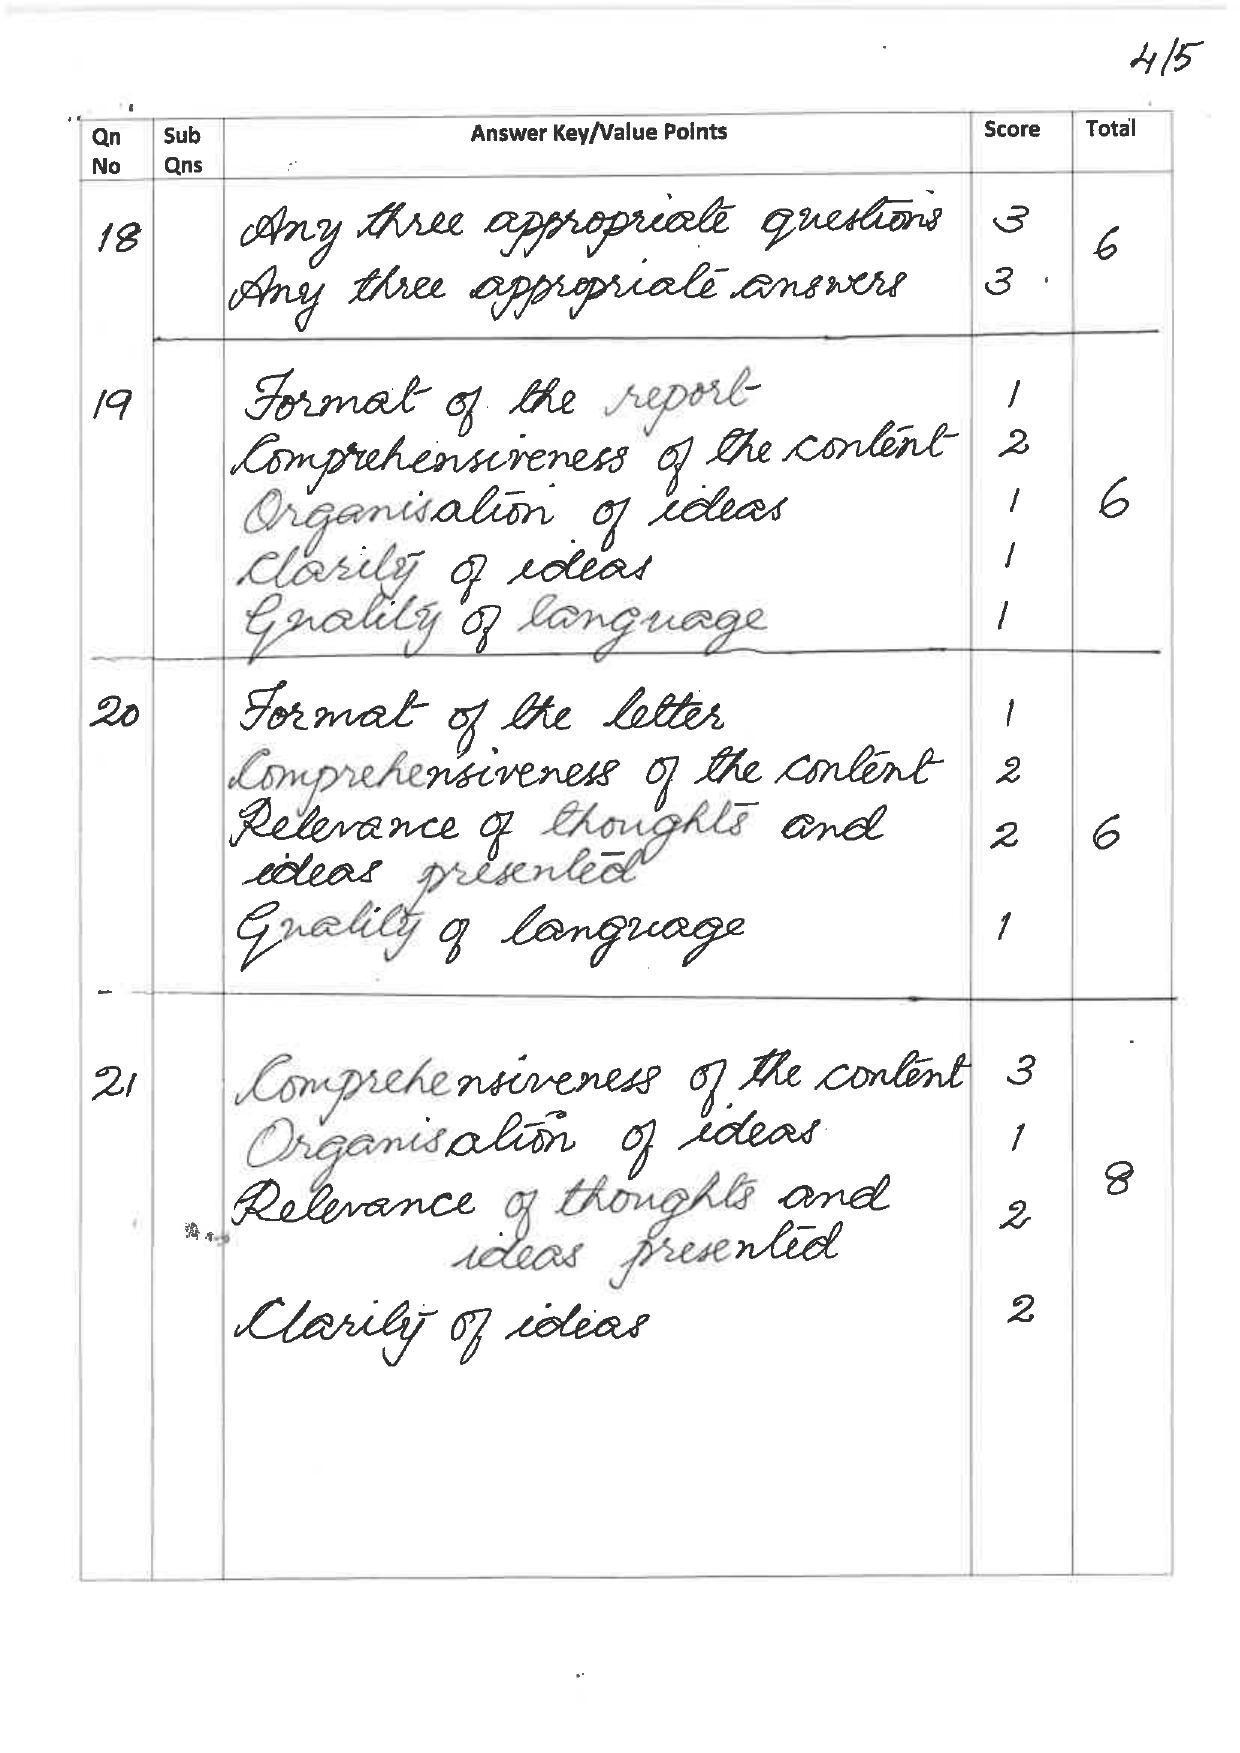 4/5
Qn No Sub Qns Answer Key/Value Points Score Total
18 Any three appropriate questions 3 6
Any three appropriate answers 3
19 Format of the report 1
Comprehensiveness of the content 2
Organisation of ideas 1 6
Clarity of ideas 1
Quality of language 1
20 Format of the letter 1
Comprehensiveness of the content 2
Relevance of thoughts and 2 6
ideas presented
Quality of language 1
21 Comprehensiveness of the content 3
Organisation of ideas 1
Relevance of thoughts and 2 8
ideas presented
Clarity of ideas 2